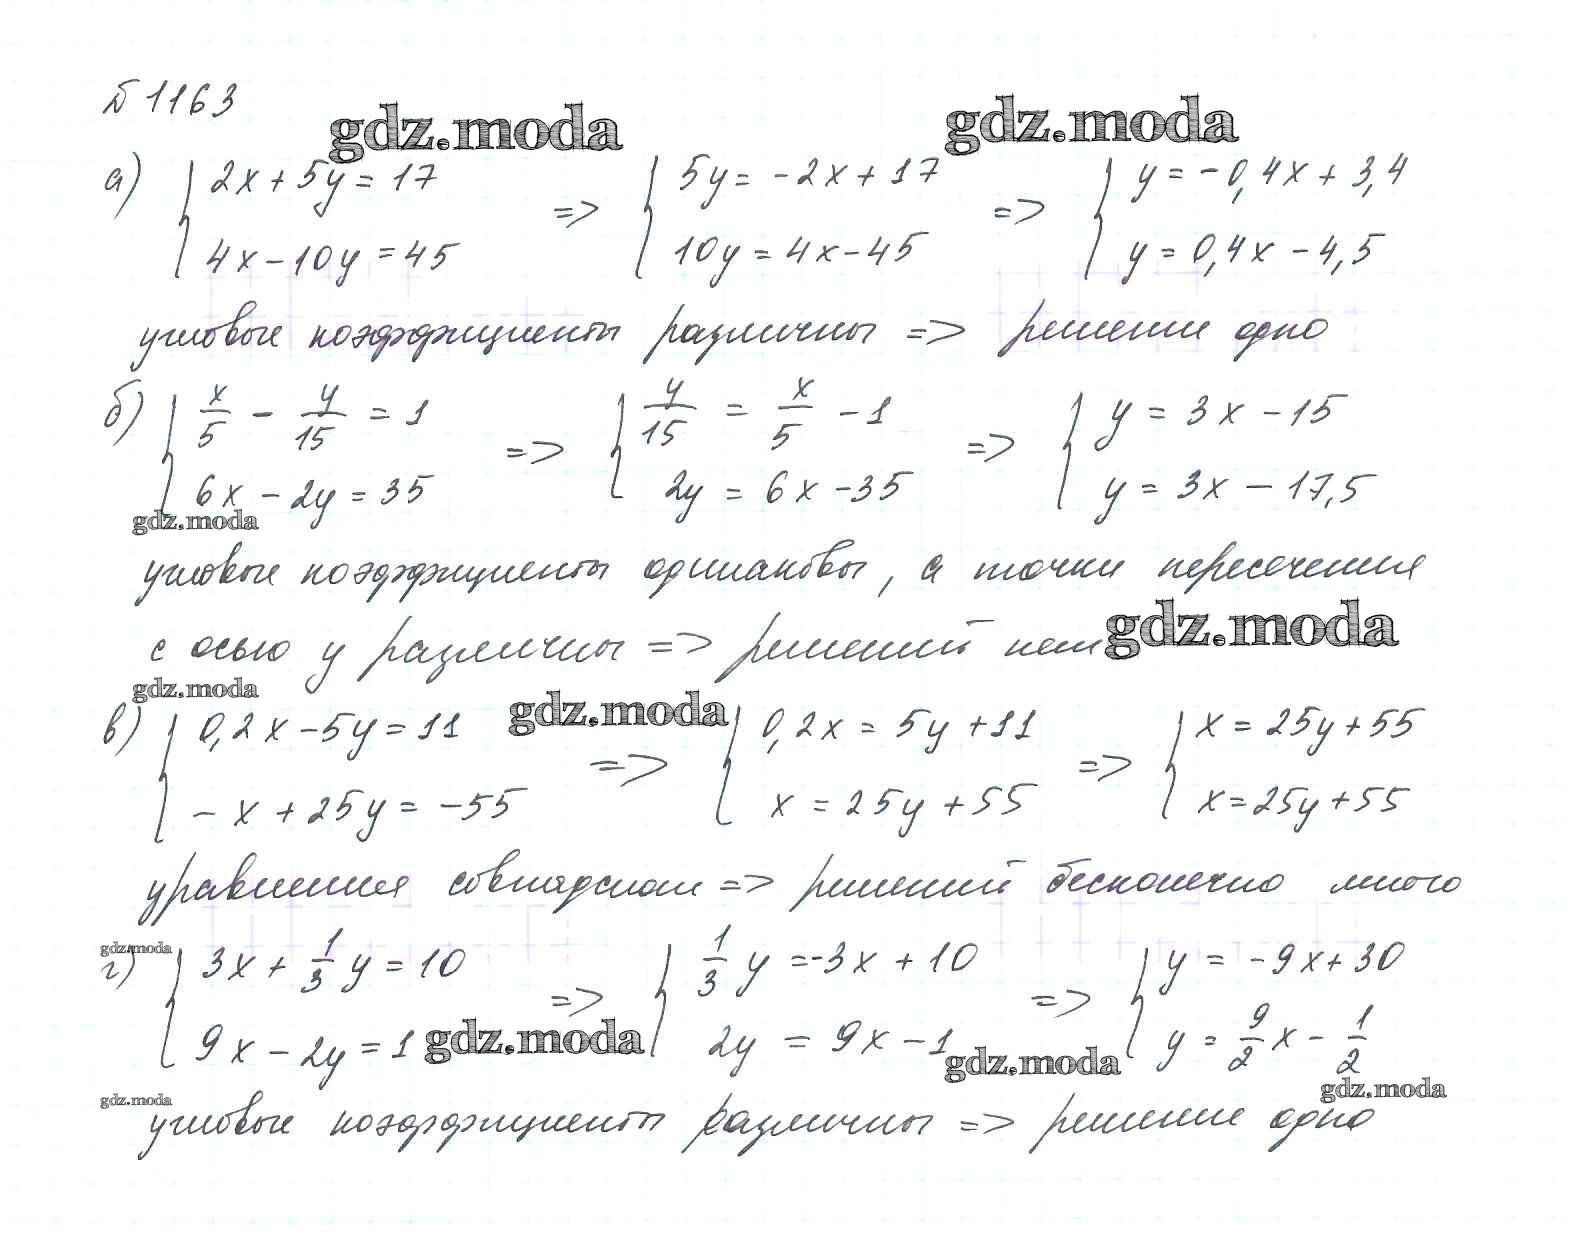 № 1163
gdz.moda gdz.moda
а) { 2x + 5y = 17 => { 5y = -2x + 17 => { y = -0,4x + 3,4
4x - 10y = 45 10y = 4x - 45 y = 0,4x - 4,5
угловые коэффициенты различны => решение одно
б) { x/5 - y/15 = 1 => { y/15 = x/5 - 1 => { y = 3x - 15
6x - 2y = 35 2y = 6x - 35 y = 3x - 17,5
gdz.moda
угловые коэффициенты одинаковы, а точки пересечения
с осью y различны => решений нет gdz.moda
gdz.moda gdz.moda
в) { 0,2x - 5y = 11 => { 0,2x = 5y + 11 => { x = 25y + 55
- x + 25y = -55 x = 25y + 55 x = 25y + 55
уравнения совпадают => решений бесконечно много
gdz.moda
г) { 3x + 1/3 y = 10 => { 1/3 y = -3x + 10 => { y = -9x + 30
9x - 2y = 1 gdz.moda 2y = 9x - 1 gdz.moda y = 9/2 x - 1/2
gdz.moda gdz.moda
угловые коэффициенты различны => решение одно